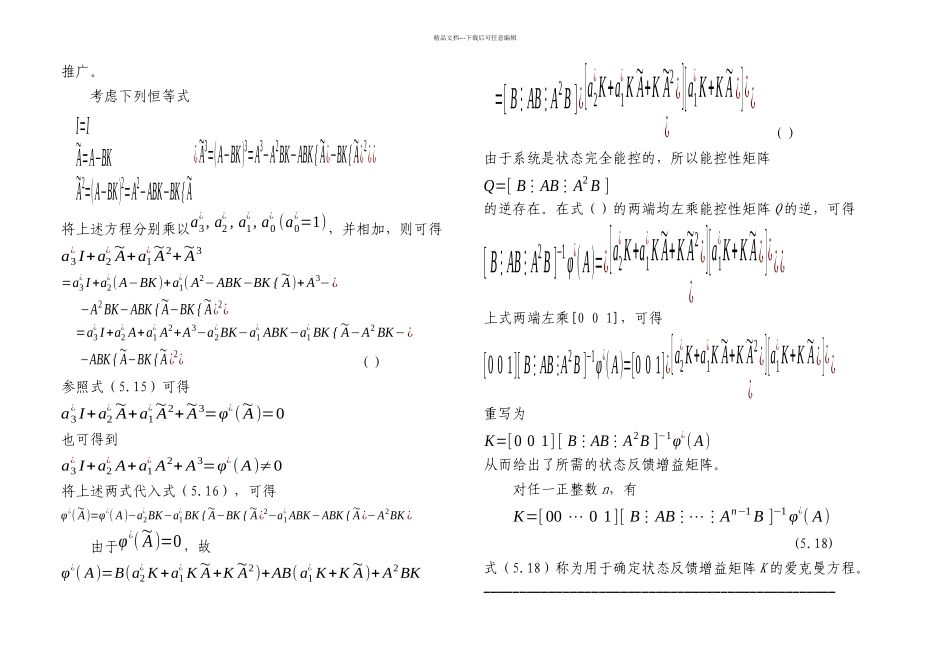 精品文档---下载后可任意编辑
推广。
考虑下列恒等式
I=I
Ã=A−BK
¿Ã³=(A−BK)³=A³−A²BK−ABK{Ã¿−BK{Ã¿²¿¿
Ã²=(A−BK)²=A²−ABK−BK{Ã
将上述方程分别乘以a₃^¿, a₂^¿, a₁^¿, a₀^¿ (a₀^¿=1)，并相加，则可得
a₃^¿ I+a₂^¿ Ã+a₁^¿ Ã²+Ã³
=a₃^¿ I+a₂^¿(A−BK)+a₁^¿(A²−ABK−BK{Ã)+A³−¿
−A²BK−ABK{Ã−BK{Ã¿²¿
=a₃^¿ I+a₂^¿ A+a₁^¿ A²+A³−a₂^¿ BK−a₁^¿ ABK−a₁^¿ BK{Ã−A²BK−¿
−ABK{Ã−BK{Ã¿²¿ ( )
参照式（5.15）可得
a₃^¿ I+a₂^¿ Ã+a₁^¿ Ã²+Ã³=φ^¿(Ã)=0
也可得到
a₃^¿ I+a₂^¿ A+a₁^¿ A²+A³=φ^¿(A)≠0
将上述两式代入式（5.16），可得
φ^¿(Ã)=φ^¿(A)−a₂^¿ BK−a₁^¿ BK{Ã−BK{Ã¿²−a₁^¿ ABK−ABK{Ã¿−A²BK¿
由于φ^¿(Ã)=0，故
φ^¿(A)=B(a₂^¿ K+a₁^¿ KÃ+KÃ²)+AB(a₁^¿ K+KÃ)+A²BK
=[B⋮AB⋮A²B]¿[a₂^¿ K+a₁^¿ KÃ+KÃ²¿][a₁^¿ K+KÃ¿]¿¿
¿ ( )
由于系统是状态完全能控的，所以能控性矩阵
Q=[B⋮AB⋮A²B]
的逆存在。在式（）的两端均左乘能控性矩阵Q的逆，可得
[B⋮AB⋮A²B]⁻¹φ^¿(A)=¿[a₂^¿ K+a₁^¿ KÃ+KÃ²¿][a₁^¿ K+KÃ¿]¿¿¿
¿
上式两端左乘[0 0 1]，可得
[0 0 1][B⋮AB⋮A²B]⁻¹φ^¿(A)=[0 0 1]¿[a₂^¿ K+a₁^¿ KÃ+KÃ²¿][a₁^¿ K+KÃ¿]¿¿
¿
重写为
K=[0 0 1][B⋮AB⋮A²B]⁻¹φ^¿(A)
从而给出了所需的状态反馈增益矩阵。
对任一正整数n，有
K=[00 ⋯ 0 1][B⋮AB⋮⋯⋮Aⁿ⁻¹B]⁻¹φ^¿(A)
(5.18)
式（5.18）称为用于确定状态反馈增益矩阵K的爱克曼方程。